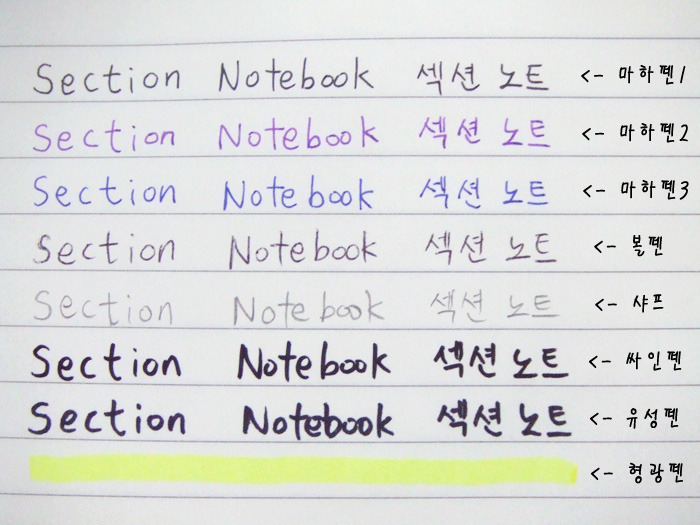 Section Notebook 섹션 노트 <- 마하펜1
Section Notebook 섹션 노트 <- 마하펜2
Section Notebook 섹션 노트 <- 마하펜3
Section Notebook 섹션 노트 <- 볼펜
Section Notebook 섹션 노트 <- 샤프
Section Notebook 섹션 노트 <- 싸인펜
Section Notebook 섹션 노트 <- 유성펜
<- 형광펜